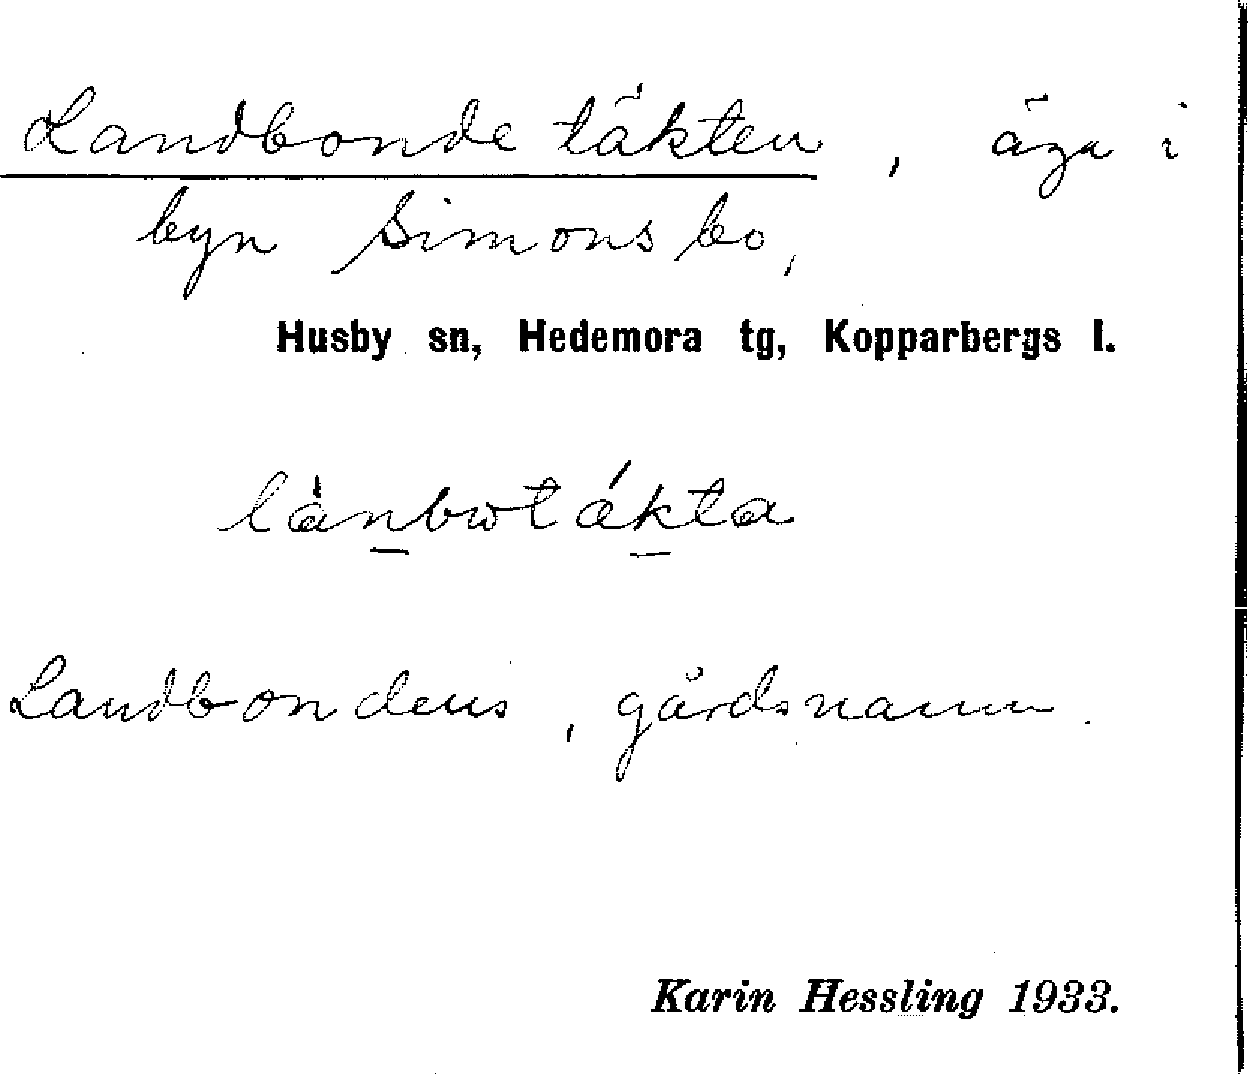 Landbondetäkten, äga i
byn Simonsbo,
Husby sn, Hedemora tg, Kopparbergs l.
Landbondens, gårdsnamn.
Karin Hessling 1933.